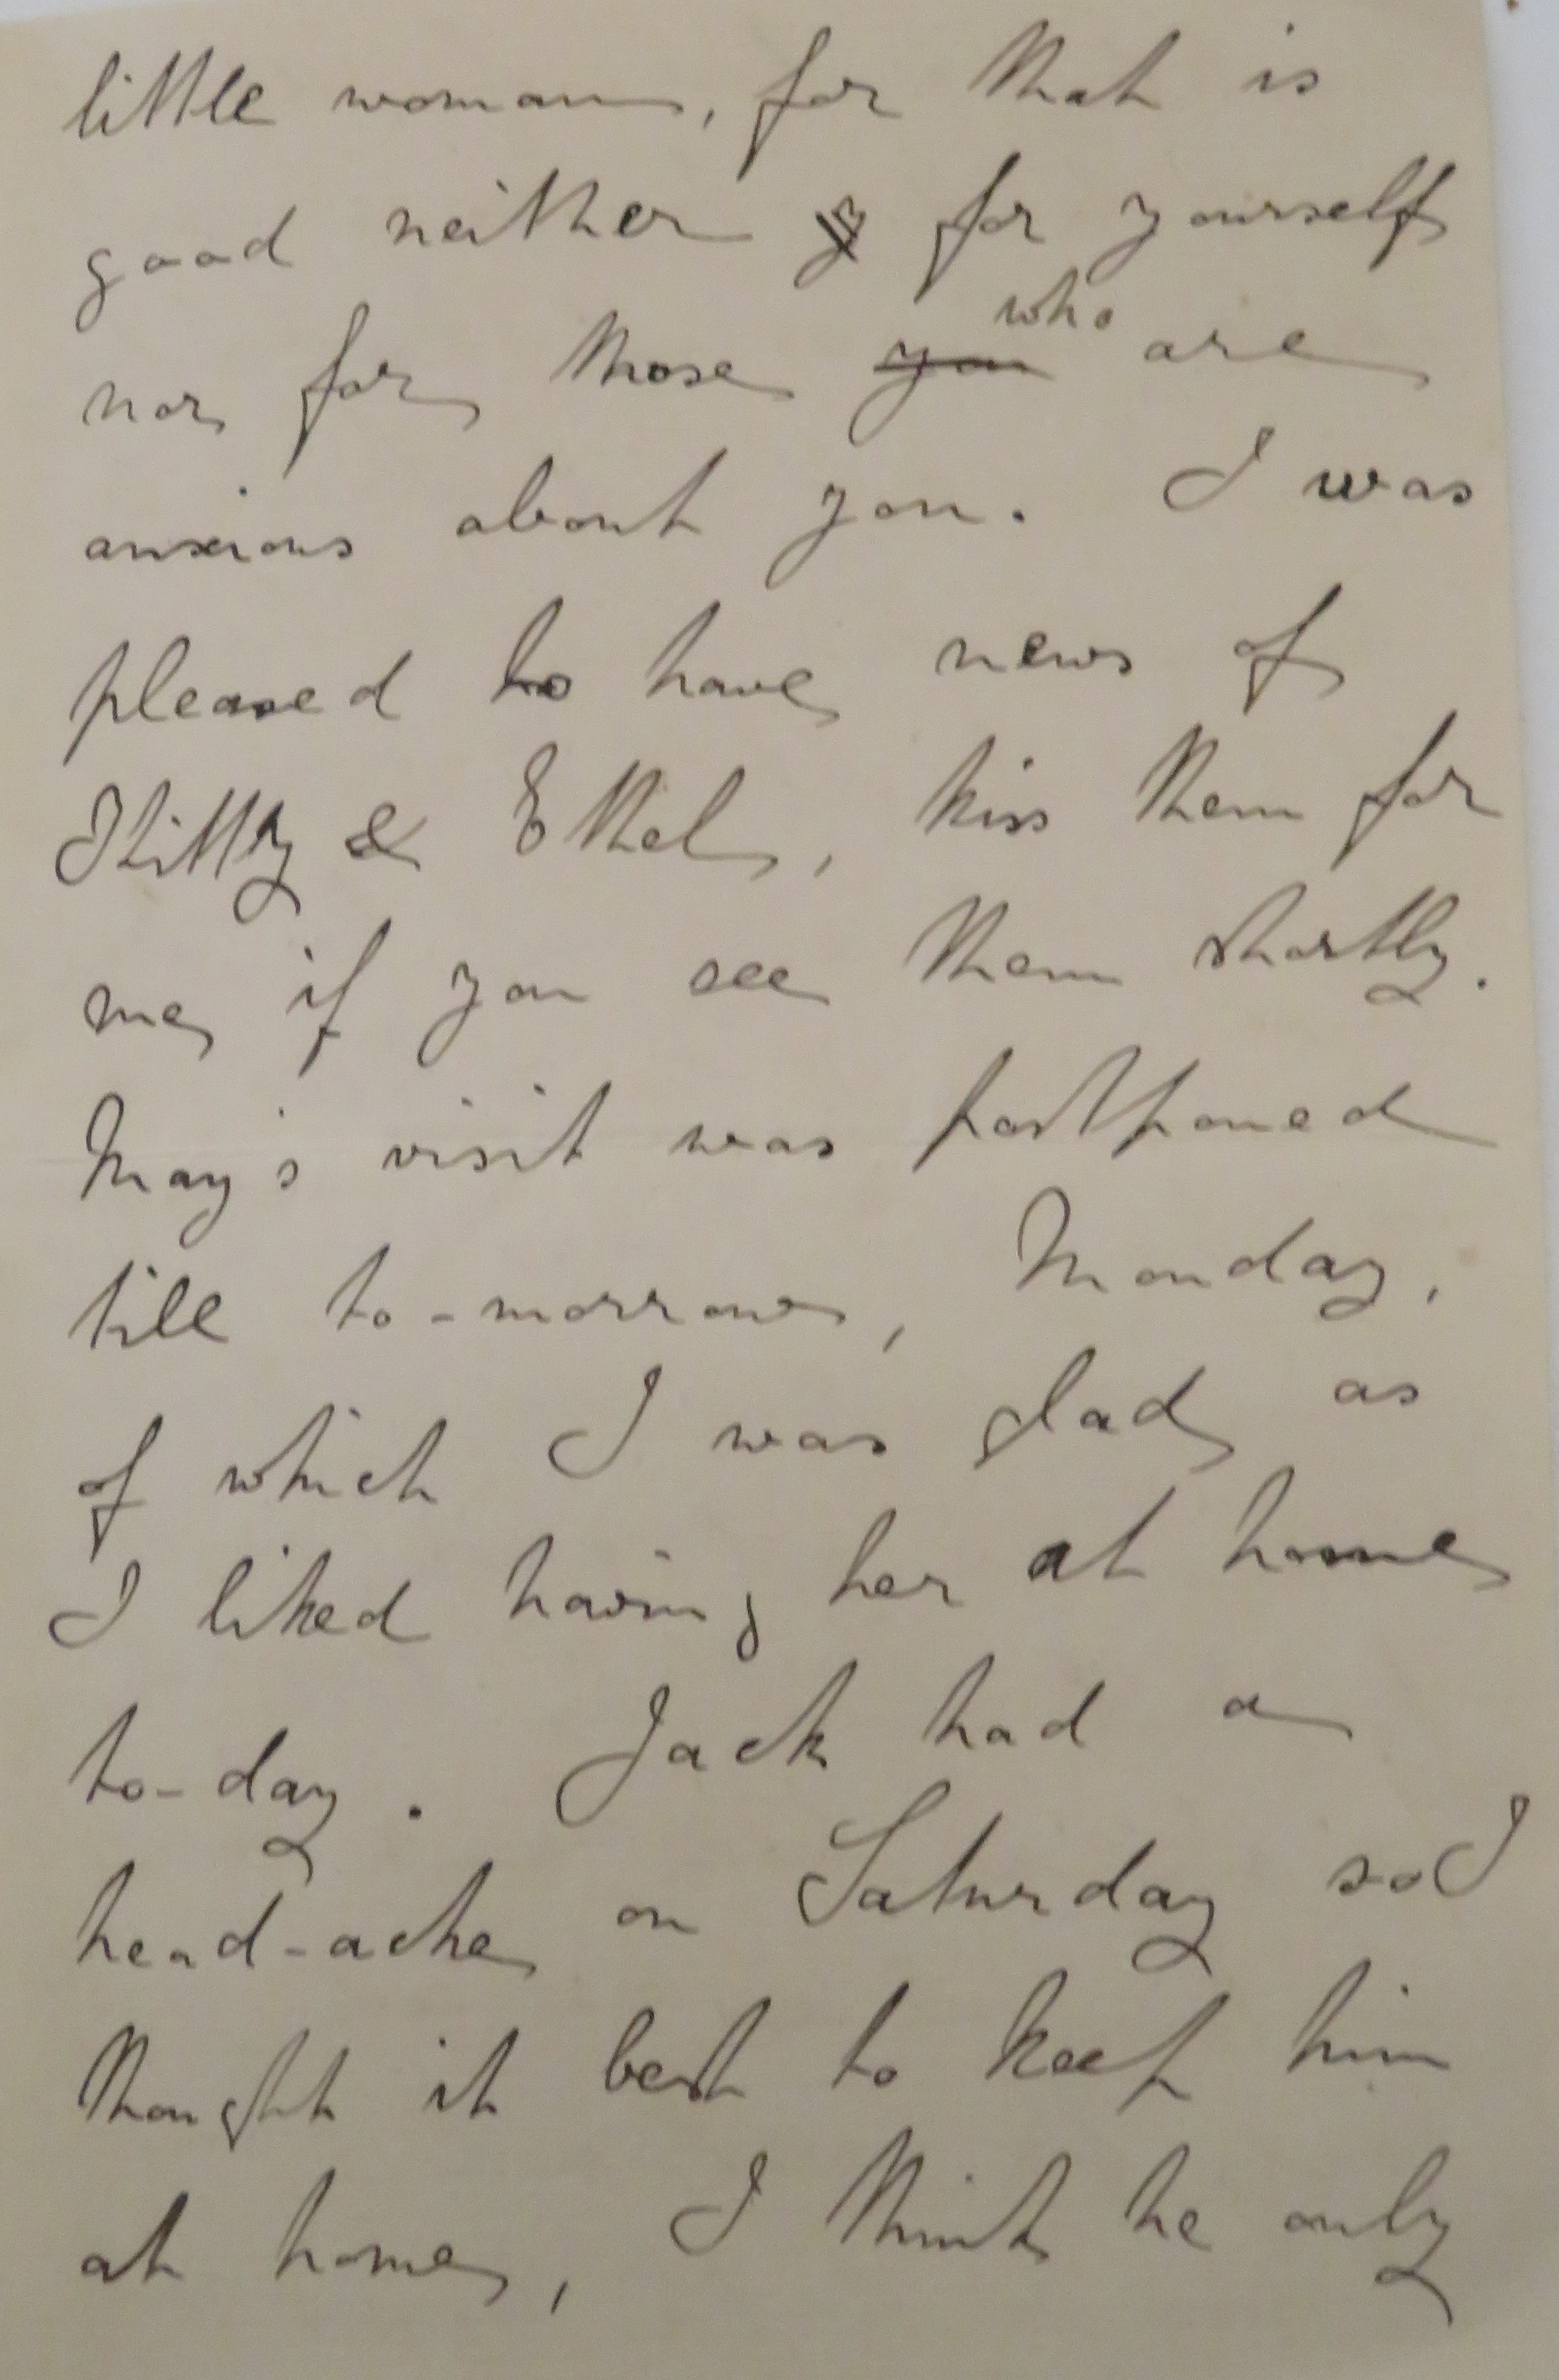 little woman, for that is
good neither y for yourself
nor for those you who are
anxious about you. I was
pleased to have news of
Kitty & Ethel, kiss them for
me if you see them shortly.
May's visit was postponed
till to-morrow, Monday,
of which I was glad as
I liked having her at home
to-day. Jack had a
head-ache on Saturday so I
thought it best to keep him
at home, I think he only